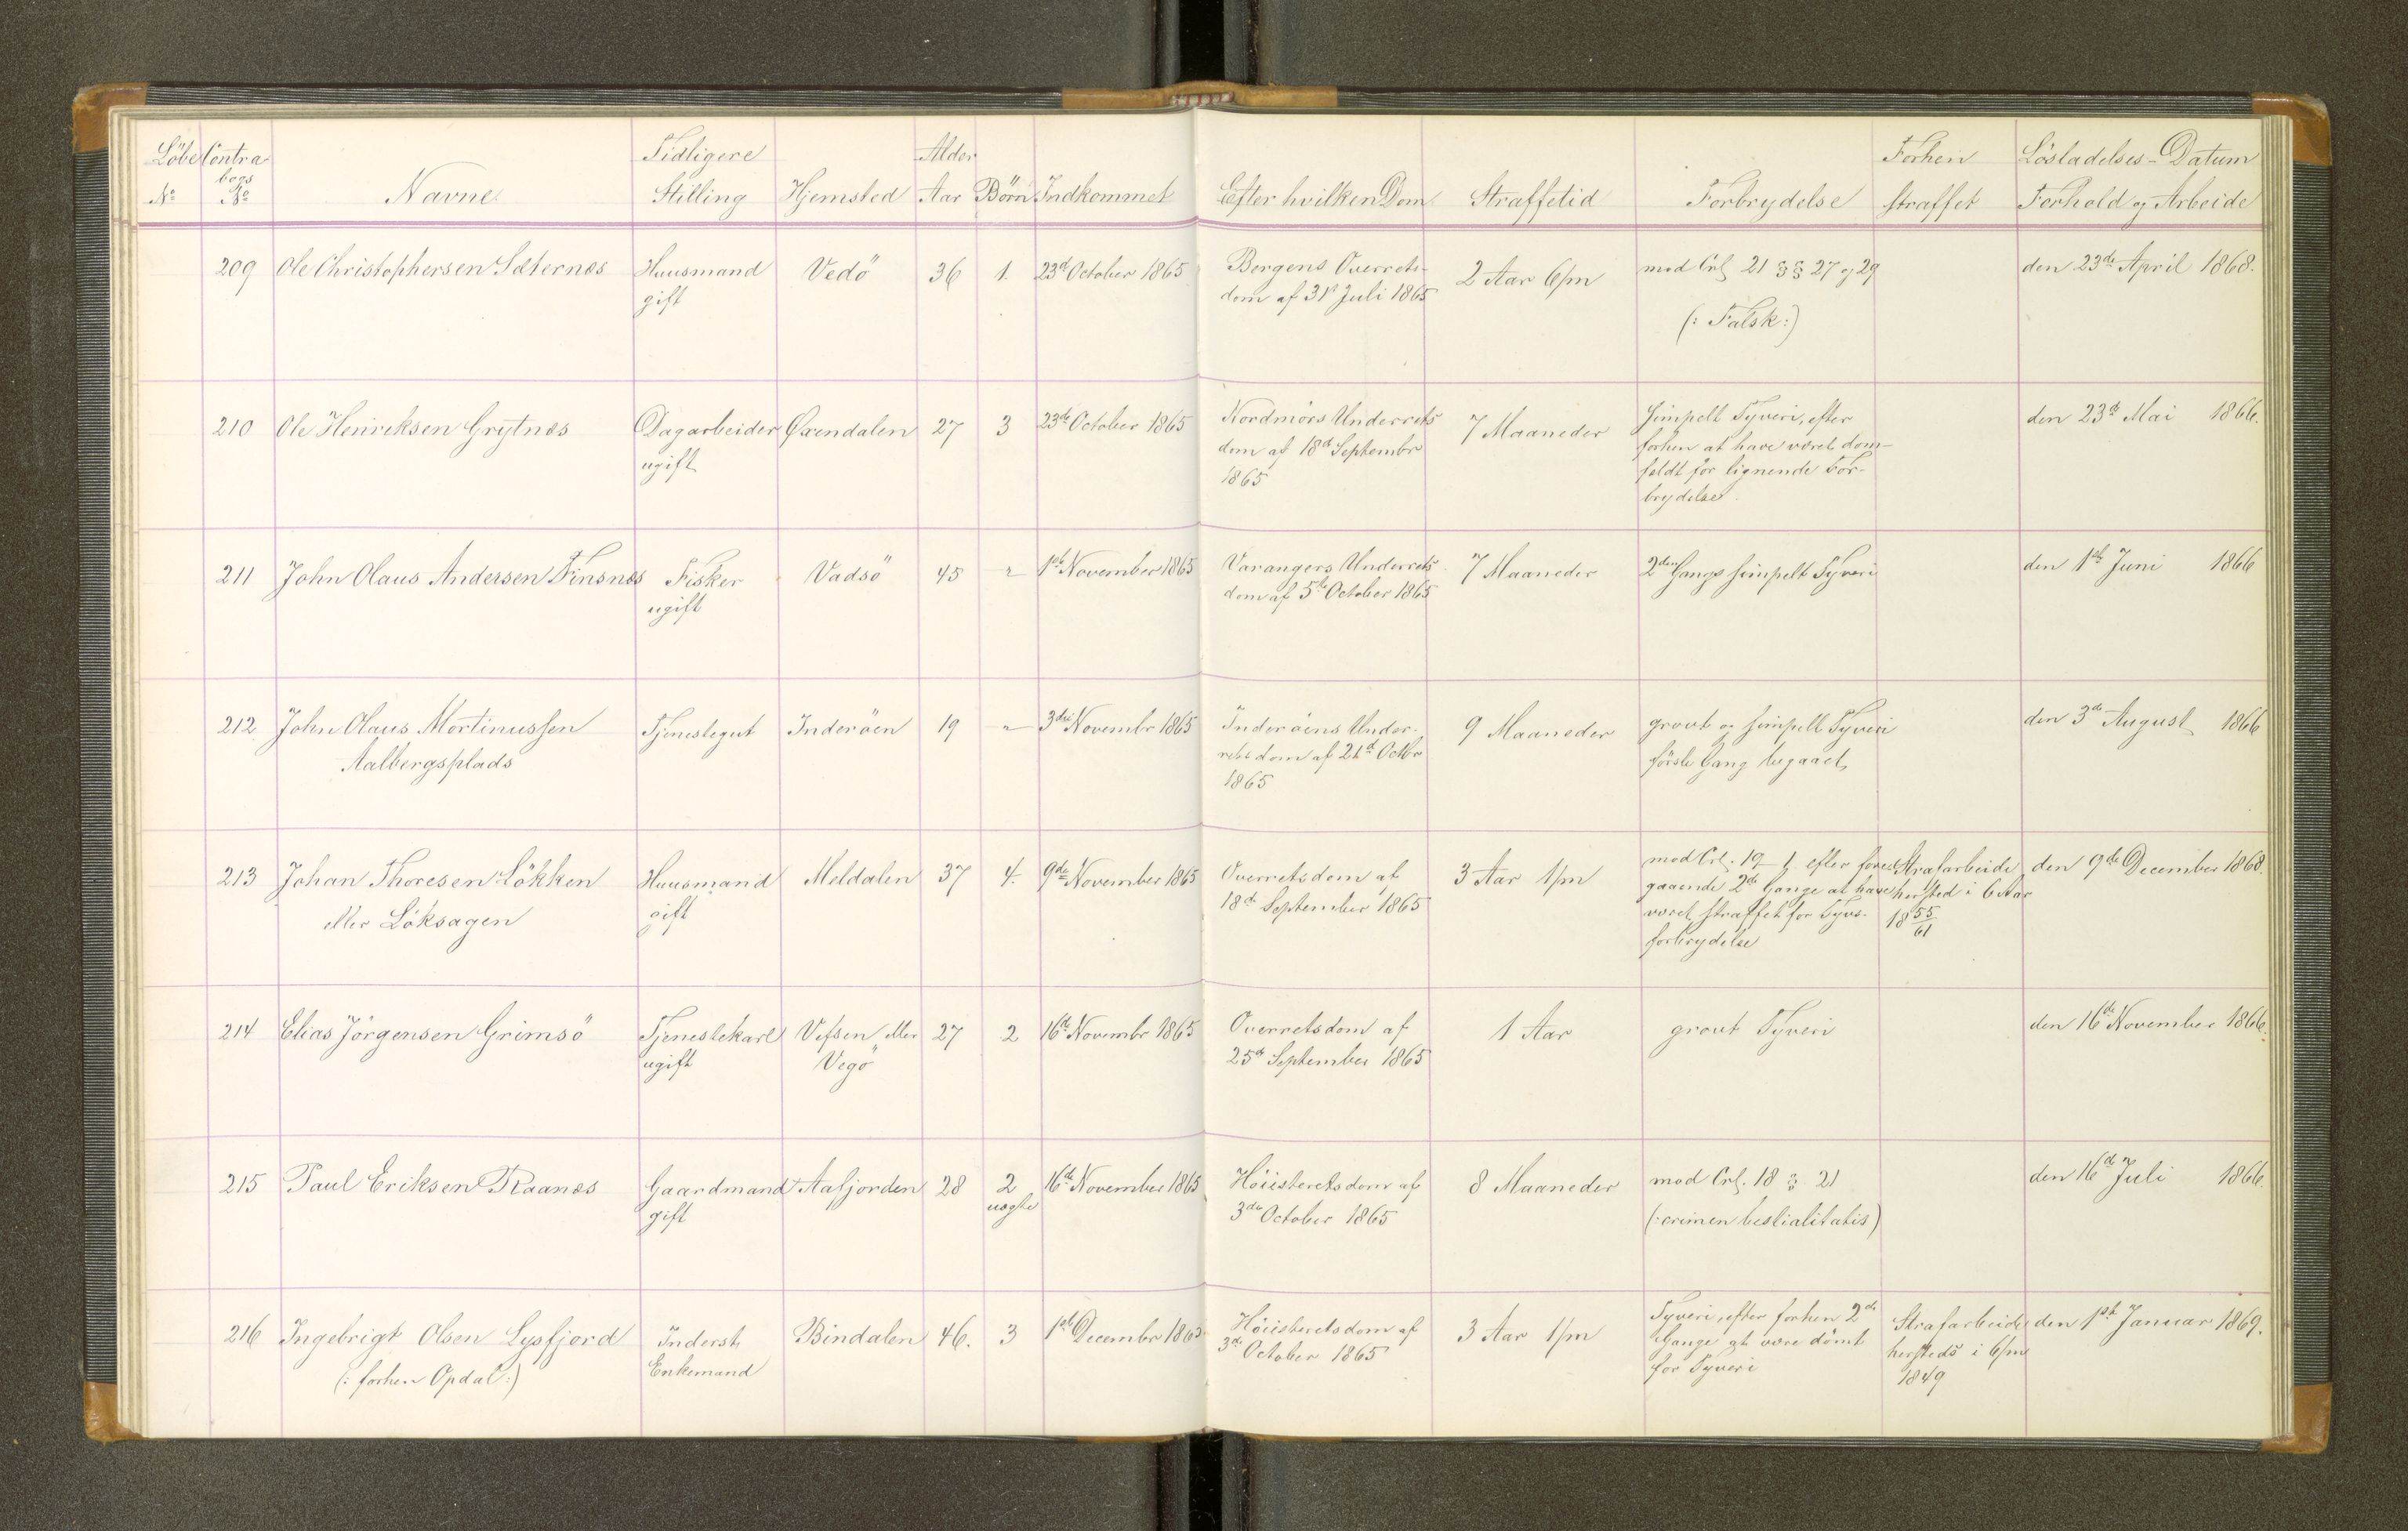 Löbe Contra Tidligere Alder Forhen Lösladelses-Datum
bogs
No No Navne Stilling Hjemsted Aar Börn Indkommet Efter hvilken Dom Straffetid Forbrydelse straffet Forhold og Arbeide
209 Ole Christophersen Sæternæs Huusmand Vedö 36 1. 23d October 1865 Bergens Overrets- 2 Aar 6/m mod Crl 21 §§ 27 og 29 den 23de April 1868.
gift dom af 31t Juli 1865
(: Falsk:)
210 Ole Henriksen Grytnæs Dagarbeider Øxendalen 27 3 23de October 1865 Nordmörs Underrets 7 Maaneder Simpelt Tyveri, efter den 23de Mai 1866.
ugift dom af 18de Septembr forhen at have været dom-
1865 feldt for lignende For-
brydelse.
211 John Olaus Andersen Finsnæs Fisker Vadsö 45 " 1ste November 1865 Varangers Underrets 7 Maaneder 2den Gangs simpelt Tyveri den 1ste Juni 1866
ugift dom af 5te October 1865
212 John Olaus Mortinussen Tjenestegut Inderöen 19 " 3die Novembr 1865 Inderöens Under- 9 Maaneder grovt og simpelt Tyveri den 3de August 1866
Aalbergsplads rets dom af 21d Octbr förste Gang begaaet
1865
213 Johan Thoresen Lökken Huusmand Meldalen 37 4. 9de November 1865 Overretsdom af 3 Aar 1/m mod Crl. 19 1 efter fored Strafarbeide den 9de December 1868.
eller Löksagen gift 18de September 1865 gaaende 2de Gange at have hersted i 6 Aar
været straffet for Tyvs- 18 55/61
forbrydelse
214 Elias Jörgensen Grimsö Tjenestekarl Vefsen eller 27 2 16de Novembr 1865 Overretsdom af 1 Aar grovt Tyveri den 16de November 1866.
ugift Vegö 25de September 1865
215 Paul Eriksen Raanæs Gaardmand Aafjorden 28 2 16de November 1865 Höiesteretsdom af 8 Maaneder mod Crl. 18 § 21 den 16de Juli 1866.
gift uægte 3die October 1865 (: crimen bestialitatis)
216 Ingebrigt Olsen Lysfjord Inderst Bindalen 46. 3 1ste Decembr 1865 Höiesteretsdom af 3 Aar 1/m Tyveri, efter forhen 2de Strafarbeide den 1ste Januar 1869.
(: forhen Opdal:) Enkemand 3die October 1865 Gange at være dömt hersteds i 6/m
for Tyveri 1849